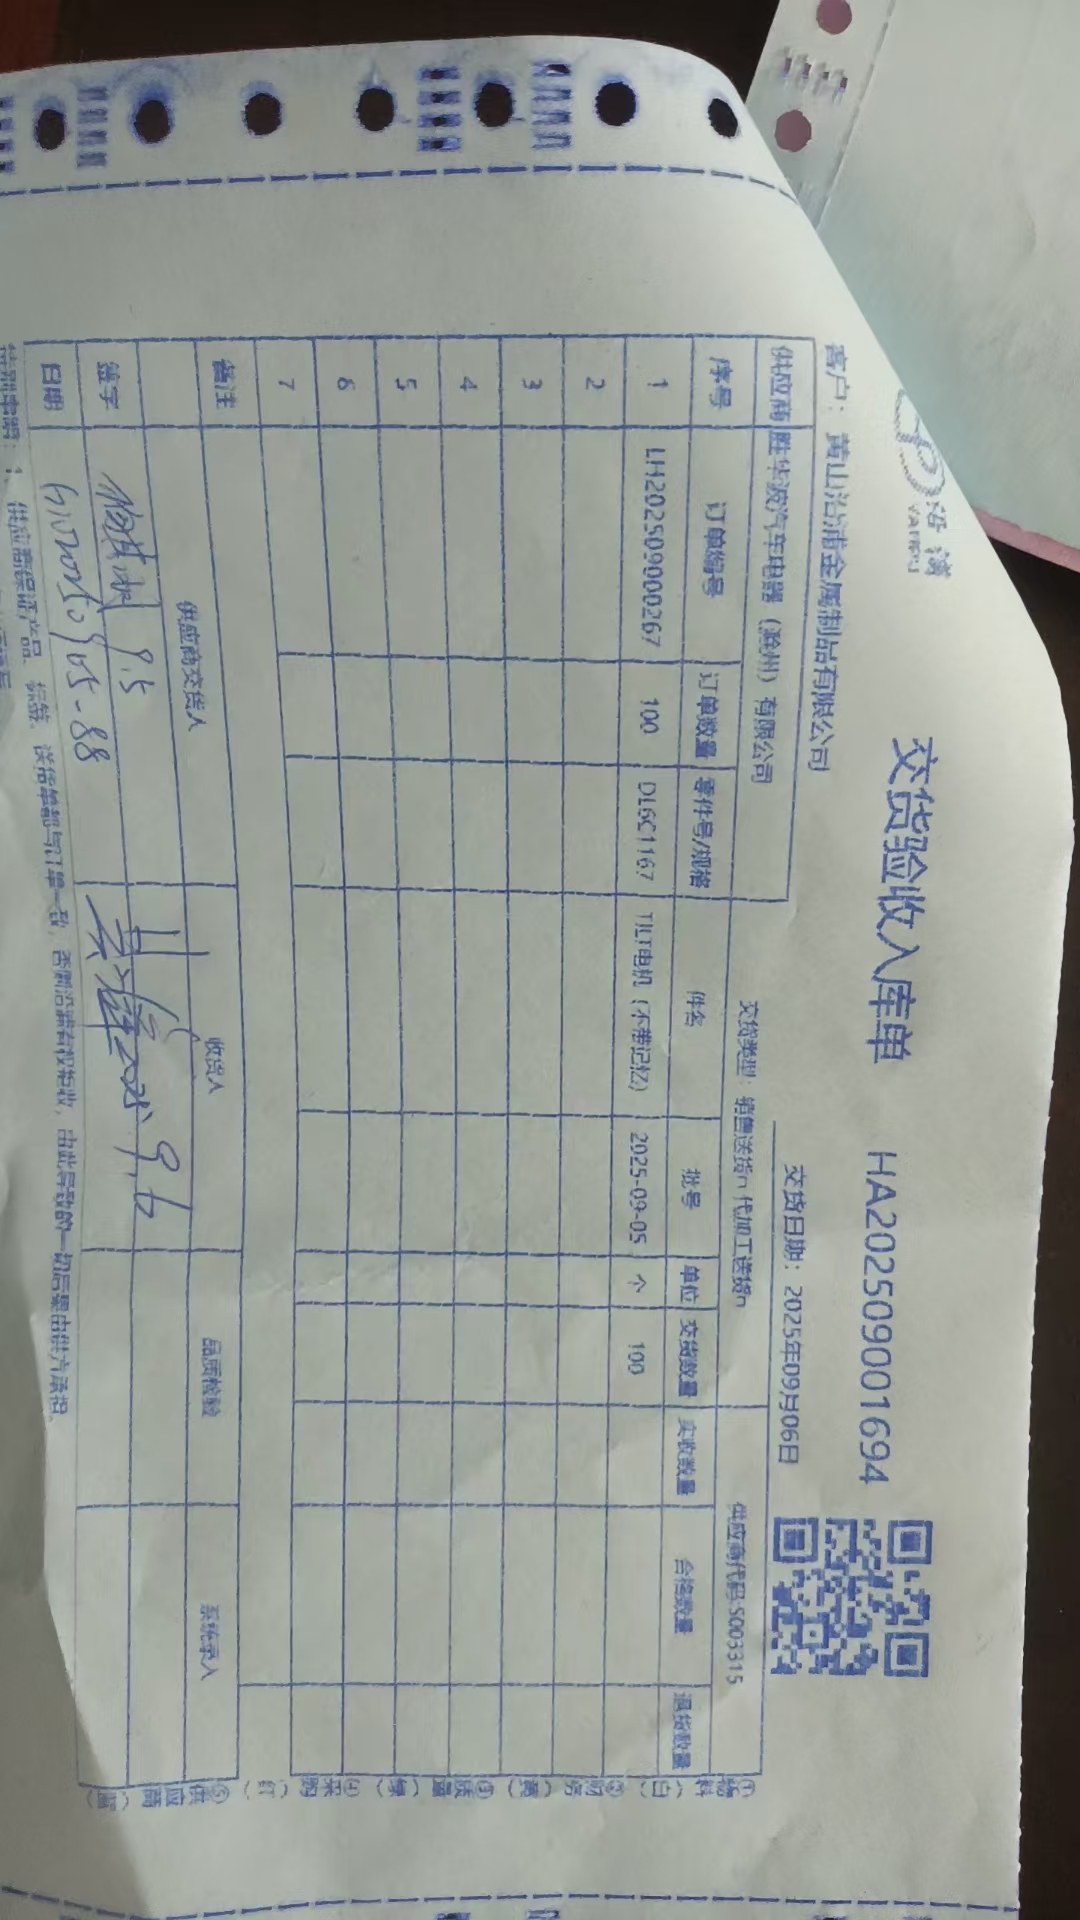 沿浦
YANPU
交货验收入库单
HA202509001694
客户：黄山沿浦金属制品有限公司
交货日期：2025年09月06日
供应商 胜华波汽车电器（滁州）有限公司
交货类型：销售送货n 代加工送货n
供应商代码:S003315
序号 订单编号 订单数量 零件号/规格 件名 批号 单位 交货数量 实收数量 合格数量 退货数量
1 LH202509000267 100 DL6C1167 TILT电机（不带记忆） 2025-09-05 个 100
2
3
4
5
6
7
备注
供应商交货人 收货人 品质检验 系统录入
签字 9.5
日期 2025 9.6
特别申明：1、供应商保证产品、标签、送货单都与订单一致，否则沿浦有权拒收，由此导致的一切后果由供方承担。
①物料（白）
②财务（黄）
③质量（绿）
④采购（红）
⑤供应商（蓝）